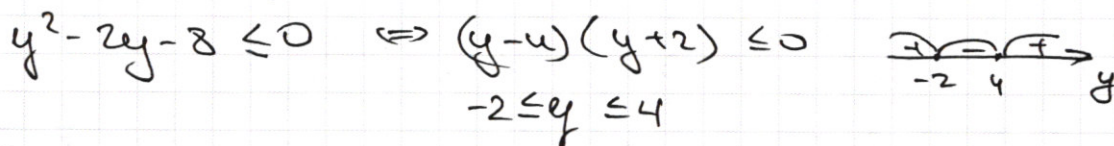 y² - 2y - 8 ≤ 0 ⇔ (y-4)(y+2) ≤ 0 + - +
-2 4 y
-2 ≤ y ≤ 4